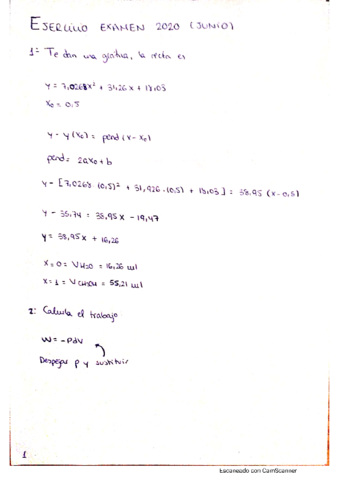 EJERCICIO EXAMEN 2020 (JUNIO)
1: Te dan una gráfica, la recta es
y = 7,0268x² + 31,926 x + 18,03
x₀ = 0.5
y - y(x₀) = pend (x - x₀)
pend = 2ax₀ + b
y - [7,0268 · (0.5)² + 31,926 · (0.5) + 18,03] = 38.95 (x - 0.5)
y - 35,74 = 38,95x - 19,47
y = 38,95x + 16,26
x = 0 = V H₂O = 16,26 ml
x = 1 = V = 55,21 ml
2: Calcula el trabajo
W = - PdV
Despejar p y sustituir
1
Escaneado con CamScanner